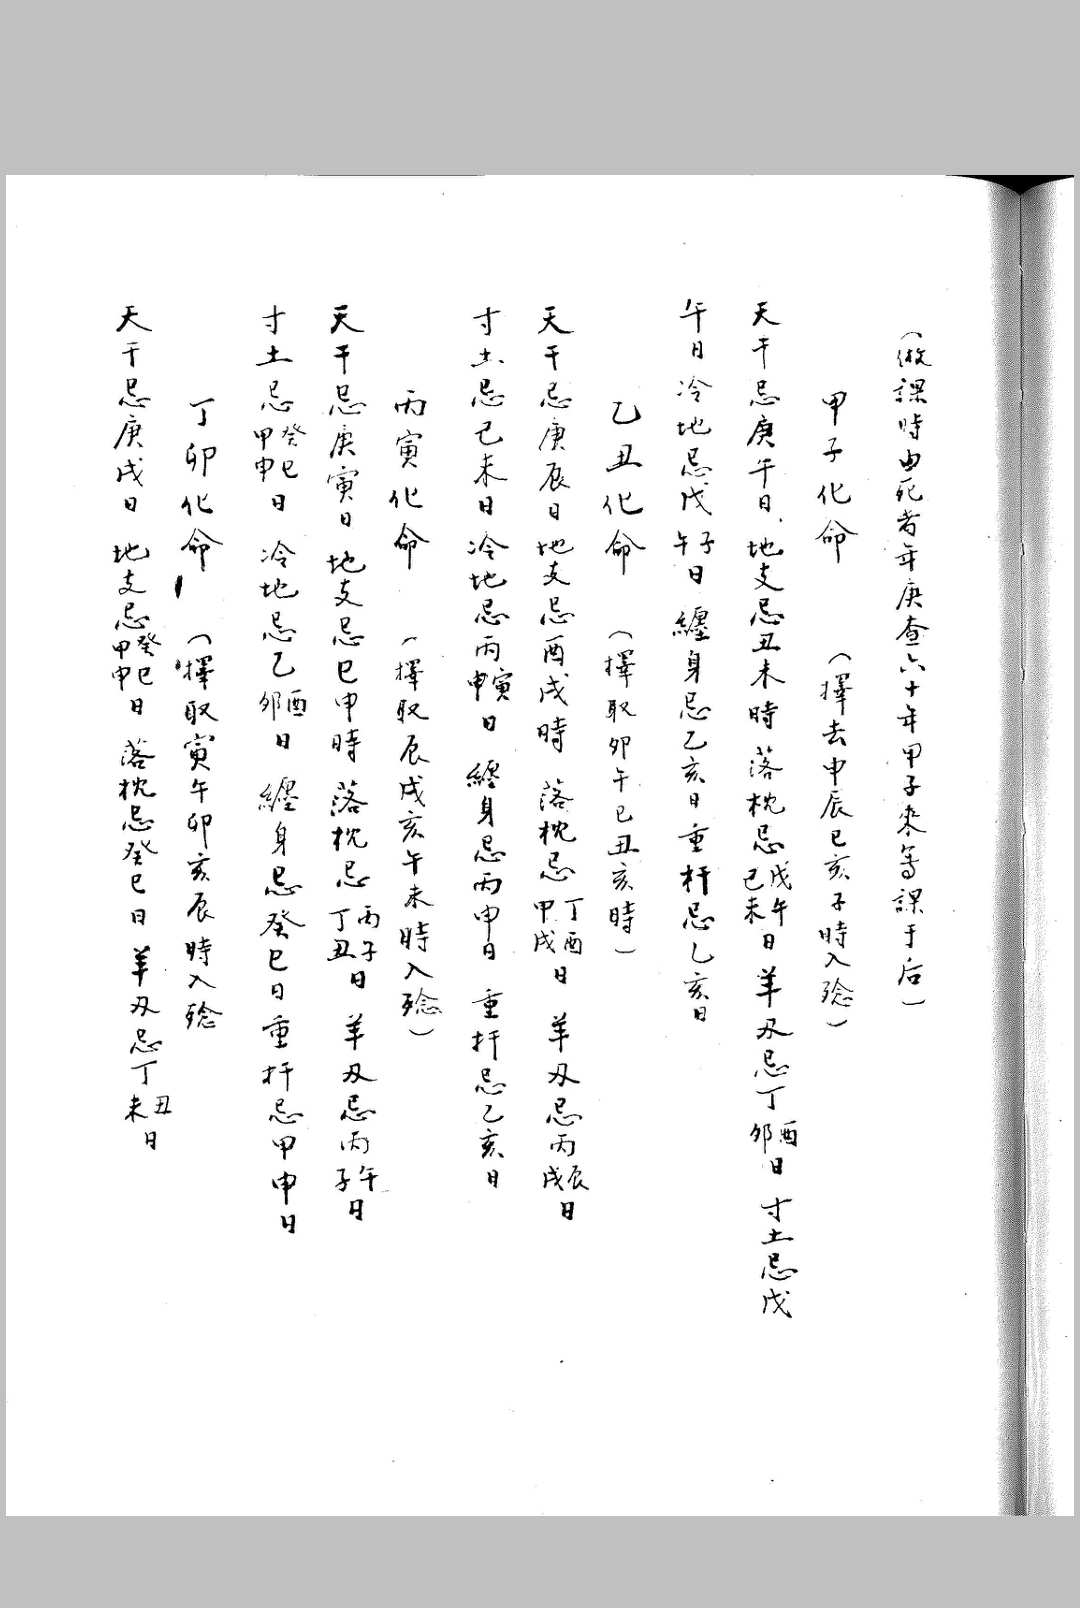 （做課時由死者年庚查六十年甲子來等課于后）
甲子化命　（擇去申辰巳亥子時入殮）
天干忌庚午日、地支忌丑未時　落枕忌戊午己未日　羊刃忌丁酉卯日　寸土忌戊
午日冷地忌戊子午日　纏身忌乙亥日重杆忌乙亥日
乙丑化命　（擇取卯午巳丑亥時）
天干忌庚辰日地支忌酉戌時　落枕忌丁酉甲戌日　羊刃忌丙辰戌日
寸土忌己未日冷地忌丙寅申日　纏身忌丙申日　重杆忌乙亥日
丙寅化命　（擇取辰戌亥午未時入殮）
天干忌庚寅日　地支忌巳申時　落枕忌丙子丁丑日　羊刃忌丙午子日
寸土忌癸巳甲申日　冷地忌乙酉卯日　纏身忌癸巳日重杆忌甲申日
丁卯化命　（擇取寅午卯亥辰時入殮
天干忌庚戌日　地支忌癸巳甲申日　落枕忌癸巳日　羊刃忌丁丑未日